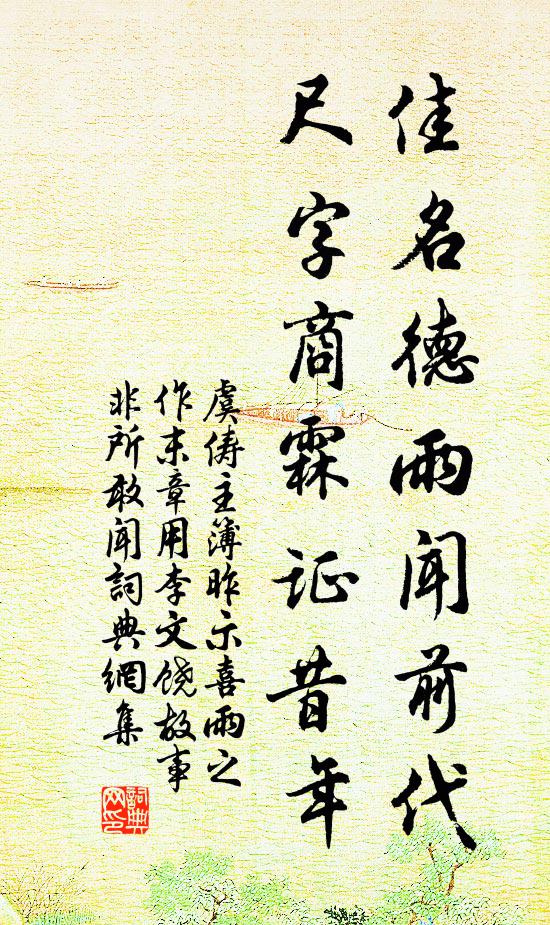 佳名德雨闻前代
尺字商霖证昔年
虞俦主薄昨示喜雨之
作末章用李文饶故事
非所敢闻詞典網集
詞典
网印